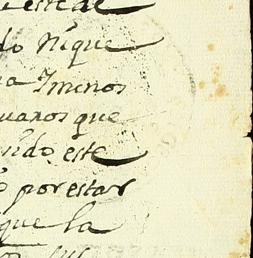 este de
do ni que
a y menos
uanos que
ndo este
o por estar
que la